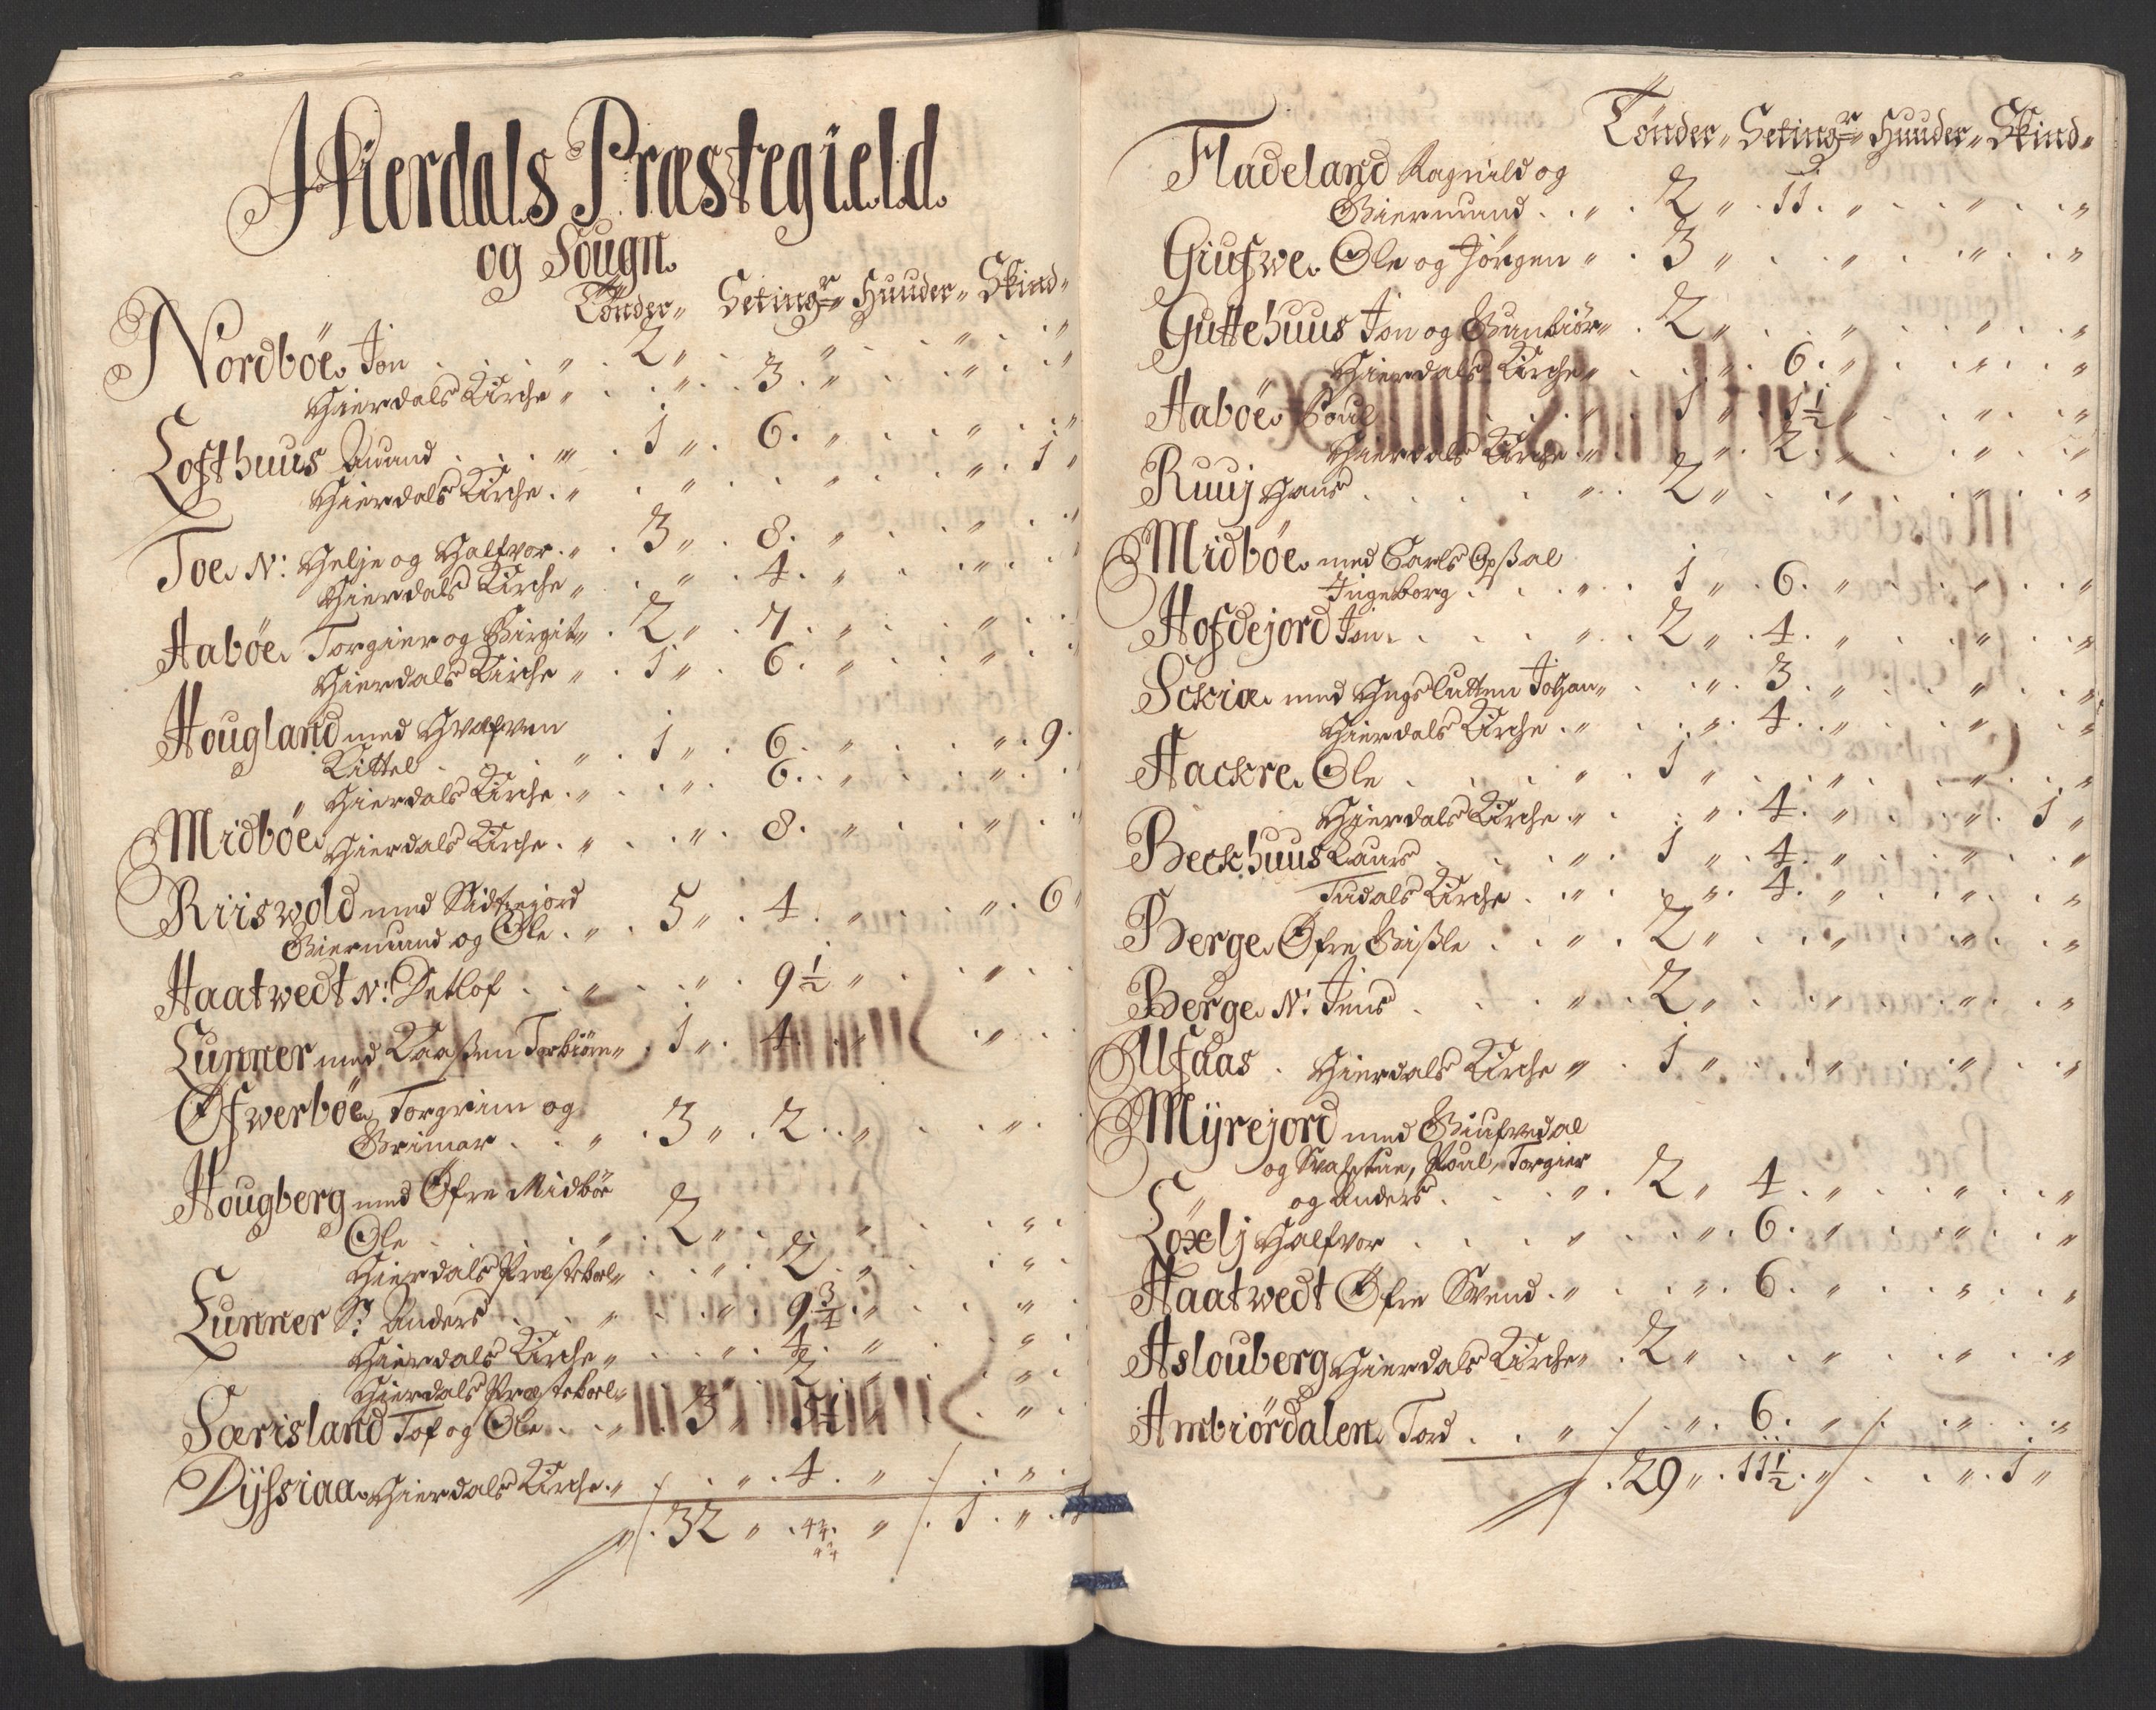 Hierdals Præstegield.
og Sougn.
Tønder„ Setingr„ Huuder„ Skind„
Nordbøe. Jon . . . „ 2 „ . . „ . . „ . . „
Hierdals Kirche „ . . „ . 3 . „ . . „ . . „
Lofthuus Amund . . . „ . 1 „ . 6 . „ . . „ . . „
Hierdals Kirche . „ . „ . . „ . . „ . 1 „
Toe. N: Helje og Halfvor . „ . 3 „ . 8 . „ . . „ . . „
Hierdals Kirche „ . . „ . 4 . „ . . „ . .
Aabøe. Torgier og Birgit „ . 2 „ . 7 . „ . . „ . .
Hierdals Kirche „ . 1 „ . 6 . „ . . „ . .
Hougland med Hvafven
Kittel . . . „ . 1 „ . 6 . „ . . „ . 9 .
„ Hierdals Kirche . „ . . „ . 6 . „ . . „ . .
Midbøe. Hierdals Kirche . „ . . „ . 8 . „ . . „ . .
Riiswold med Sidtejord
Giermund og Ole . „ . 5 „ . 4 . „ . . „ . 6 „
Haatwedt N: Detlof . . „ . . „ . 9 1/2 „ . . „ . .
Lunner med Kaaßen Torbiørn „ . 1 „ . 4 . „ . . „ . .
Ofwerbøe. Torgrim og
Grimar . . „ . 3 „ . 2 . „ . . „ .
Hougberg med Øfre Midbøe
Ole . . . . „ . 2 „ . . „ . . „ .
Hierdals Præstebol „ . . „ . 2 . „ . . „ .
Lunner S: Anders . . . „ . . „ . 9 3/4 „ . . „ .
Hierdals Kirche „ . . „ . 4 . „ . . „ .
Hierdals Præstebol „ . . „ . 2 . „ . . „ .
Særisland Tof og Ole . . „ . 3 „ . 5 1/2 „ . . „ .
Dÿssiaa. Hierdals Kirche . „ . . „ . 4 . „ . . „ .
„ . 32 „ . „ . 1 . „ .
Tønder„ Setingr„ Huuder„ Skind„
Fladeland Ragnild og
Giermund . . „ . 2 „ . 11 . „ . . „ . . „
Giufwe. Ole og Jørgen „ . 3 „ . . „ . . „ . . „
Guttehuus Jon og Gunbiør „ . 2 „ . . „ . . „ . . „
Hierdals Kirche „ . . „ . 6 . „ . . „ . . „
Aabøe. Poul . . . „ . 1 „ . 1 1/2 „ . . „ . . „
Hierdals Kirche . „ . . „ . 2 . „ . . „ . . „
Ruuj Hans . . . . „ . 2 „ . . „ . . „ . . „
Midbøe. med Carls Opßal
Ingeborg . . . „ . 1 „ . 6 . „ . . „ . . „
Hofdejord Jon . . . „ . 2 „ . 4 . „ . . „ . . „
Sckiæ. med Johan „ . . „ . 3 . „ . . „ . . „
Hierdals Kirche . „ . . „ . 4 . „ . . „ . . „
Aackre. Ole . . . „ . 1 „ . . „ . . „ . . „
Hierdals Kirche . „ . . „ . 4 . „ . . „ . 1 „
Beckhuus Laurs . . . „ . 1 „ . 4 . „ . . „ . . „
Tudals Kirche . . „ . . „ . 4 . „ . . „ . . „
Berge. Øfre Gißle . . „ . 2 „ . . „ . . „ . . „
Berge. N: Jens . . . „ . 2 „ . . „ . . „ . . „
Ulfaas . Hierdals Kirche „ . 1 „ . . „ . . „ . . „
Mÿrejord med Giufvedal
og Poul, Torgier
og Anders . . . „ . 2 „ 4 . „ . . „ . . „
Løxlj Halfvor . . . „ . . „ . 6 . „ . . „ . . „
Haatwedt Øfre Svend . „ . . „ . 6 . „ . . „ . . „
Aslouberg Hierdals Kirche „ . 2 „ . . „ . . „ . . „
Ambiørdalen. Tord . . „ . . „ . 6 . „ . . „ . . „
. 29 „ . 11 1/2 . „ . . „ . 1 „